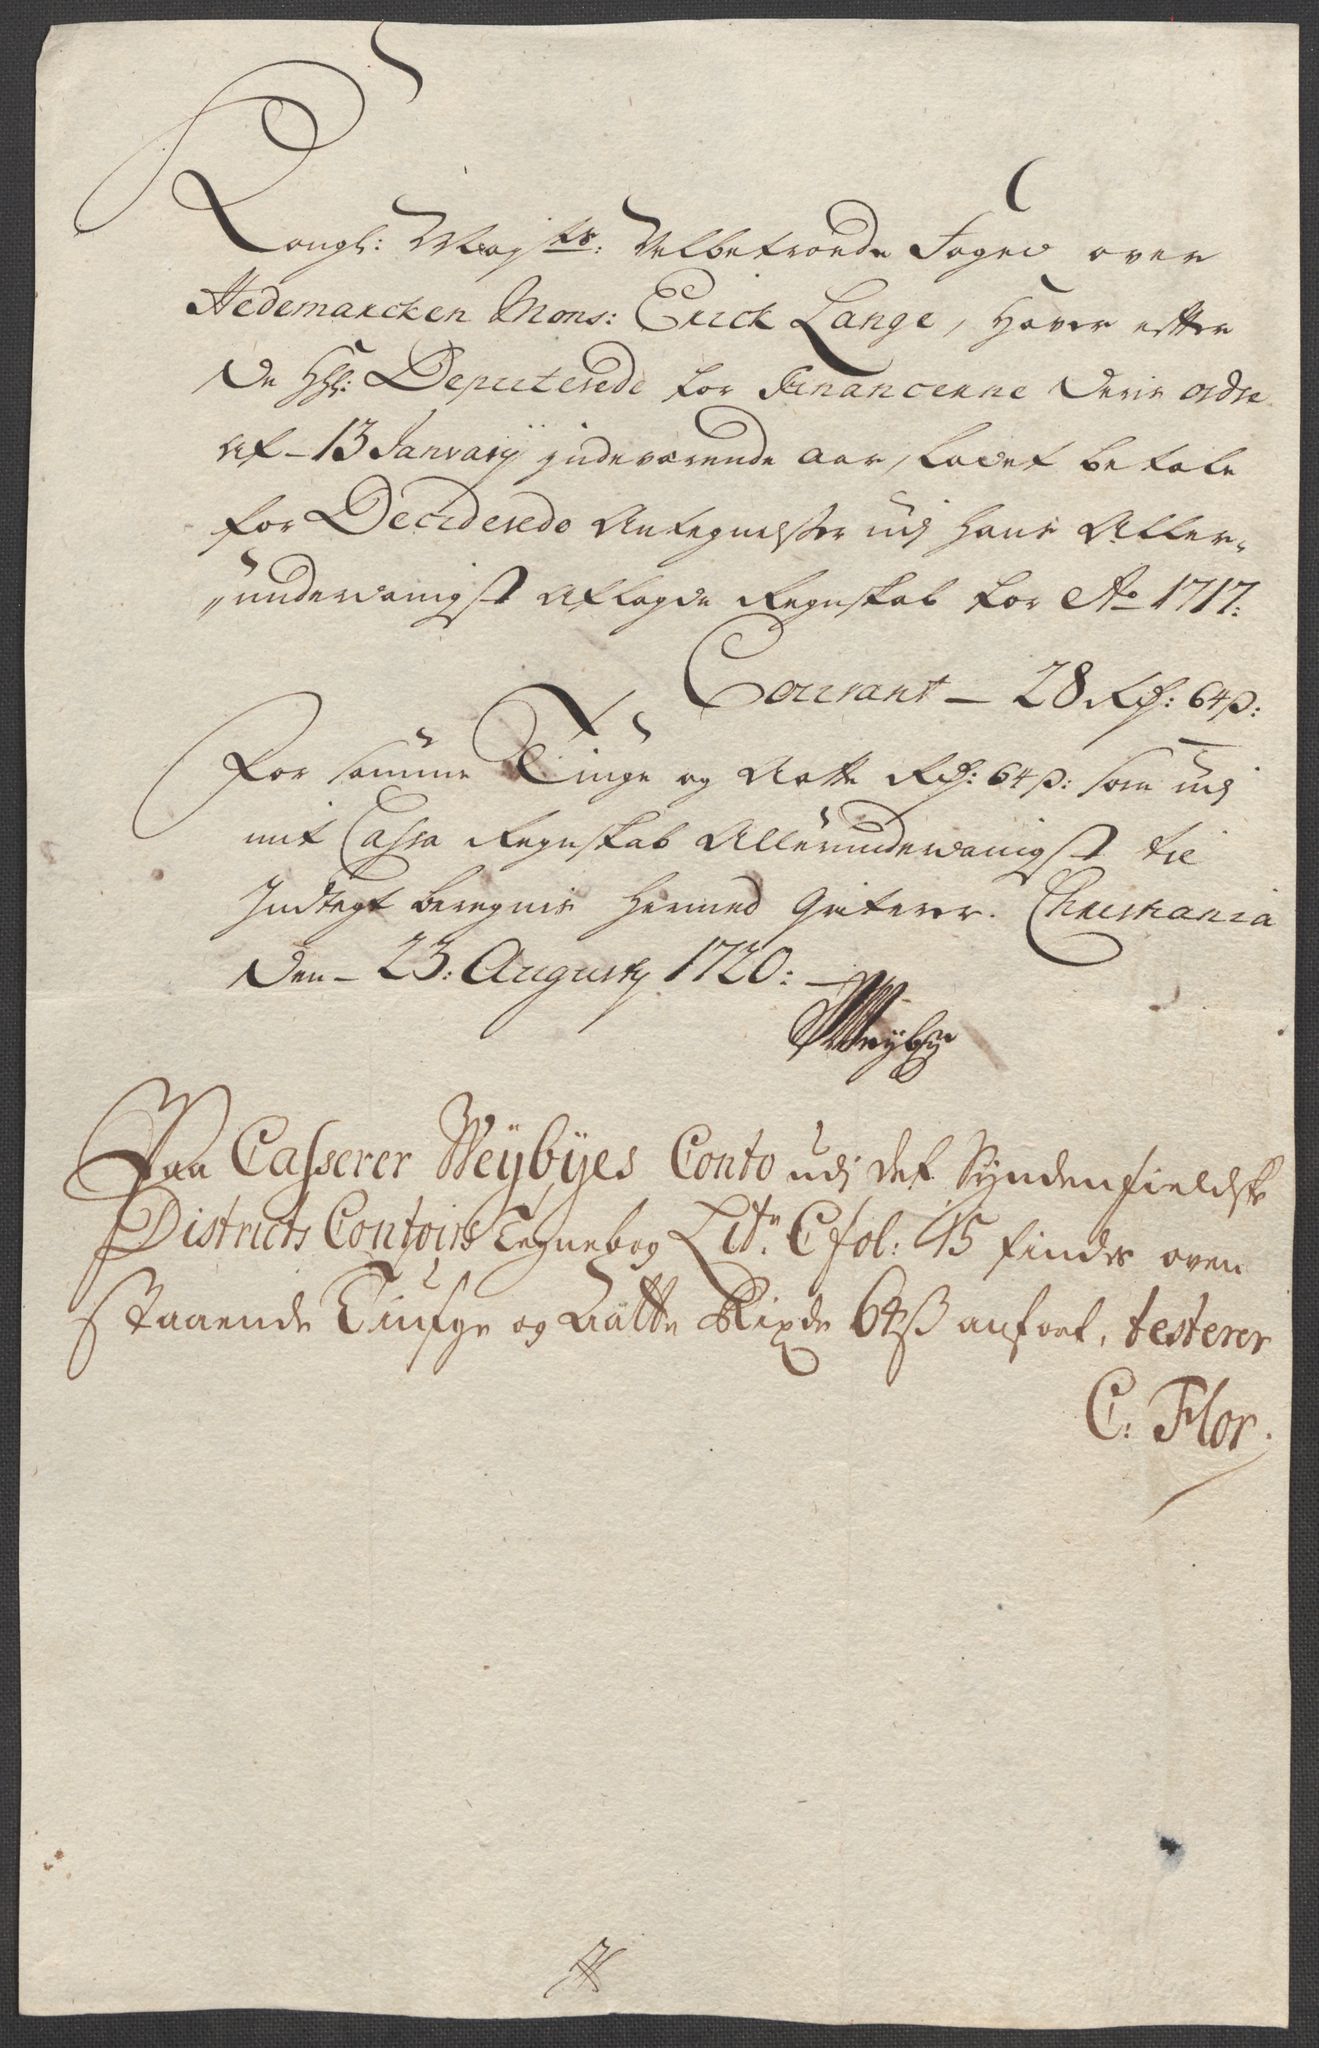 Kongl: Mayts: Velbetroede Foged over
Hedemarcken Mons: Erick Lange, Haver efter
de HHr: Deputerede for Financerne deris ordre
af 13 Januarij indeværende aar, ladet betale
for Deciderede Antegnelser udj hans Aller-
„underdanigst aflagde Regnskab for Ao 1717:
Courant – 28 Rdr: 64 ß:
For samme Tiuge og Aatte Rdr: 64 ß: som udj
mit Cassa Regnskab Allerunderdanigst til
Indtegt beregnis hermed Qviterer. Christiania
den – 23: Augustij 1720:
Weybye
Paa Casserer Weÿbÿes Conto udj det Syndenfieldske
Districts Contoirs Tegnebog Litr. C fol: 45 findes oven
staaende Tiufge og Aatte Rixdr 64 ß anfört, testerer
C: Flor.